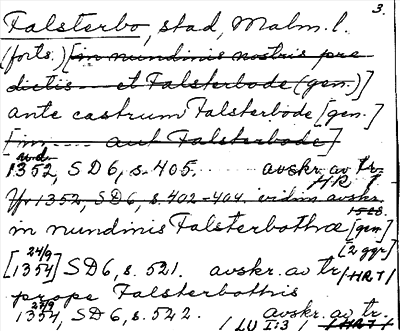 3.
Falsterbo, stad, Malm. l.
(forts.) [in nundinis nostris pre
dictis --- et Falsterbode (gen.)]
ante castrum Falsterbode [gen.]
[in ...... aut Falsterbode]
u.d.
1352, SD 6, s. 405. avskr. av tr.
HR
1352, SD 6, s. 402-404 vidim. avskr.
1528.
in nundinis Falsterbothæ [gen.]
[2 ggr]
24/9
[1354] SD 6, s. 521. avskr. av tr. /HRT/
prope Falsterbothis
1354, SD 6, s. 542. avskr. av tr.
/LU I:3/ /HRT/